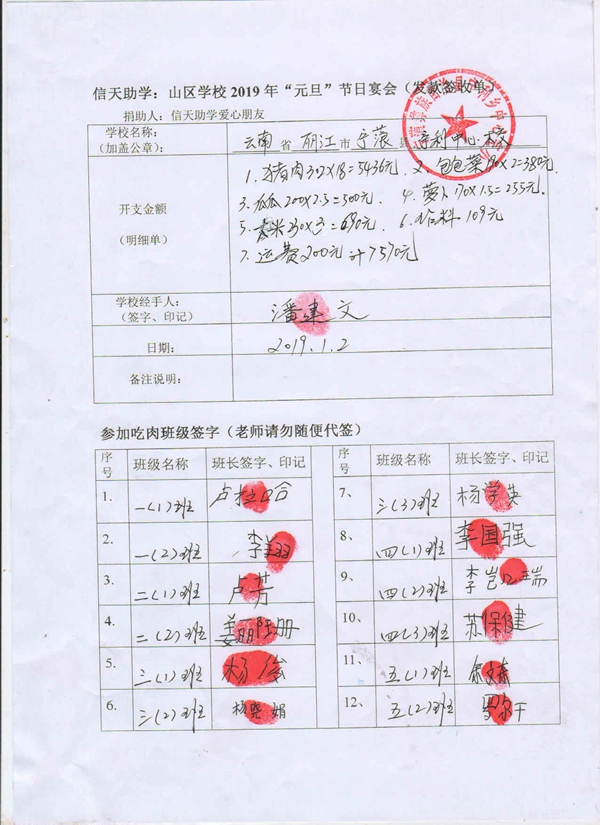 信天助学：山区学校 2019 年“元旦”节日宴会（发款签收单）
捐助人：信天助学爱心朋友
学校名称：
（加盖公章）：
云南省丽江市宁蒗县 利中心校
开支金额
（明细单）
1. 猪肉302×18=5436元、2、包包菜190×2=380元、
3、瓜瓜200×2.5=500元、4、萝卜170×1.5=255元、
5、 米230×3=690元、6、 料109元
7、运费200元 计7570元
学校经手人：
（签字、印记）
潘建文
日期：
2019.1.2
备注说明：
参加吃肉班级签字（老师请勿随便代签）
序号 班级名称 班长签字、印记 序号 班级名称 班长签字、印记
1、 一(1)班 卢 哈 7、 三(3)班 杨学英
2、 一(2)班 李 8、 四(1)班 李国强
3、 二(1)班 卢芳 9、 四(2)班 李 瑞
4、 二(2)班 姜丽 10、 四(3)班 苏保健
5、 三(1)班 杨俊 11、 五(1)班
6、 三(2)班 杨晓娟 12、 五(2)班 尔干